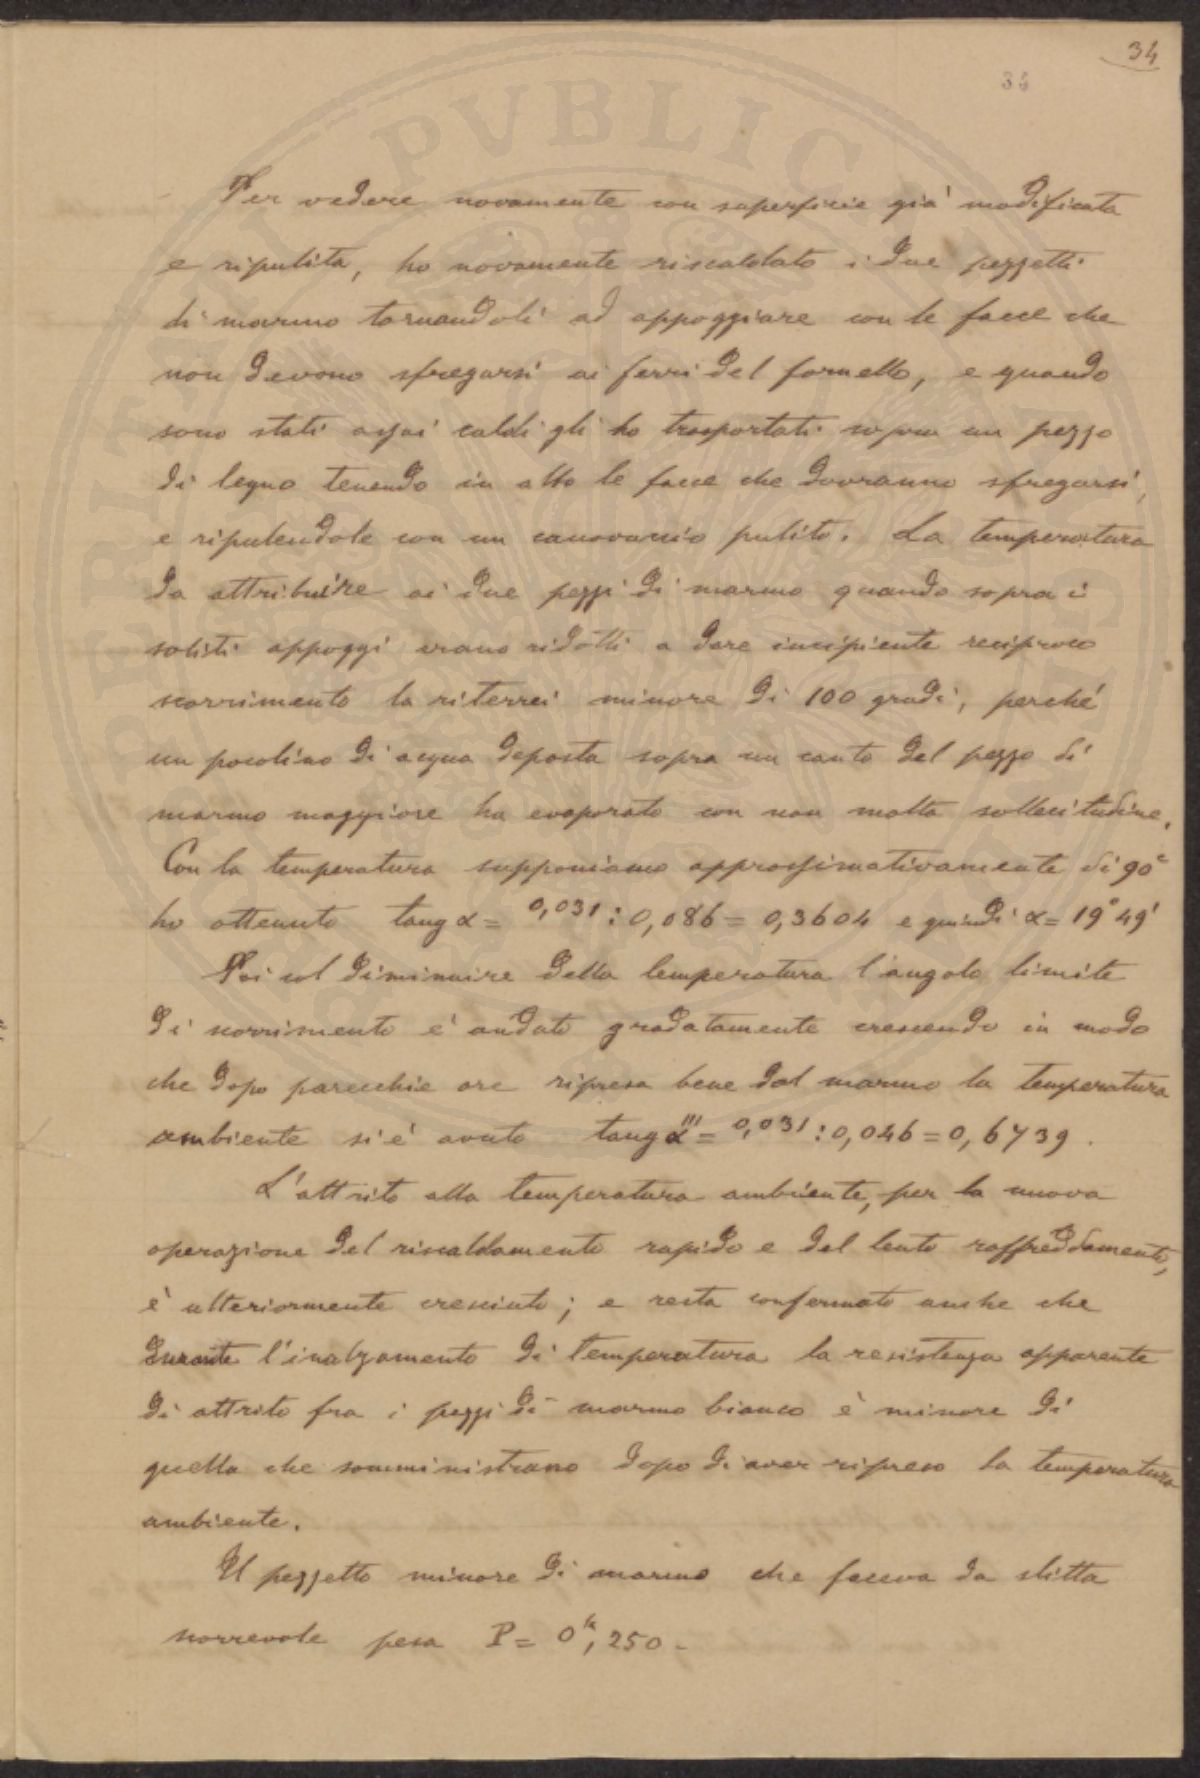 34
34
Per vedere novamente con superficie già modificata
e ripulita, ho novamente riscaldato i due pezzetti
di marmo tornandoli ad appoggiare con le facce che
non devono sfregarsi ai ferri del fornello, e quando
sono stati assai caldi gli ho trasportati sopra un pezzo
di legno tenendo in alto le facce che dovranno sfregarsi,
e ripulendole con un canovaccio pulito. La temperatura
da attribuire ai due pezzi di marmo quando sopra i
soliti appoggi erano ridotti a dare incipiente reciproco
scorrimento la riterrei minore di 100 gradi, perché
un pocolino di acqua deposta sopra un canto del pezzo di
marmo maggiore ha evaporato con non molta sollecitudine.
Con la temperatura supponiamo approssimativamente di 90°
ho ottenuto tang α = 0,031 : 0,086 = 0,3604 e quindi α = 19° 49'
Poi col diminuire della temperatura l'angolo limite
di scorrimento è andato gradatamente crescendo in modo
che dopo parecchie ore ripresa bene dal marmo la temperatura
ambiente si è avuto tang α''' = 0,031 : 0,046 = 0,6739.
L'attrito alla temperatura ambiente, per la nuova
operazione del riscaldamento rapido e del lento raffreddamento,
è ulteriormente cresciuto; e resta confermato anche che
durante l'inalzamento di temperatura la resistenza apparente
di attrito fra i pezzi di marmo bianco è minore di
quella che somministrano dopo di aver ripreso la temperatura
ambiente.
Il pezzetto minore di marmo che faceva da slitta
scorrevole pesa P = 0k,250 -